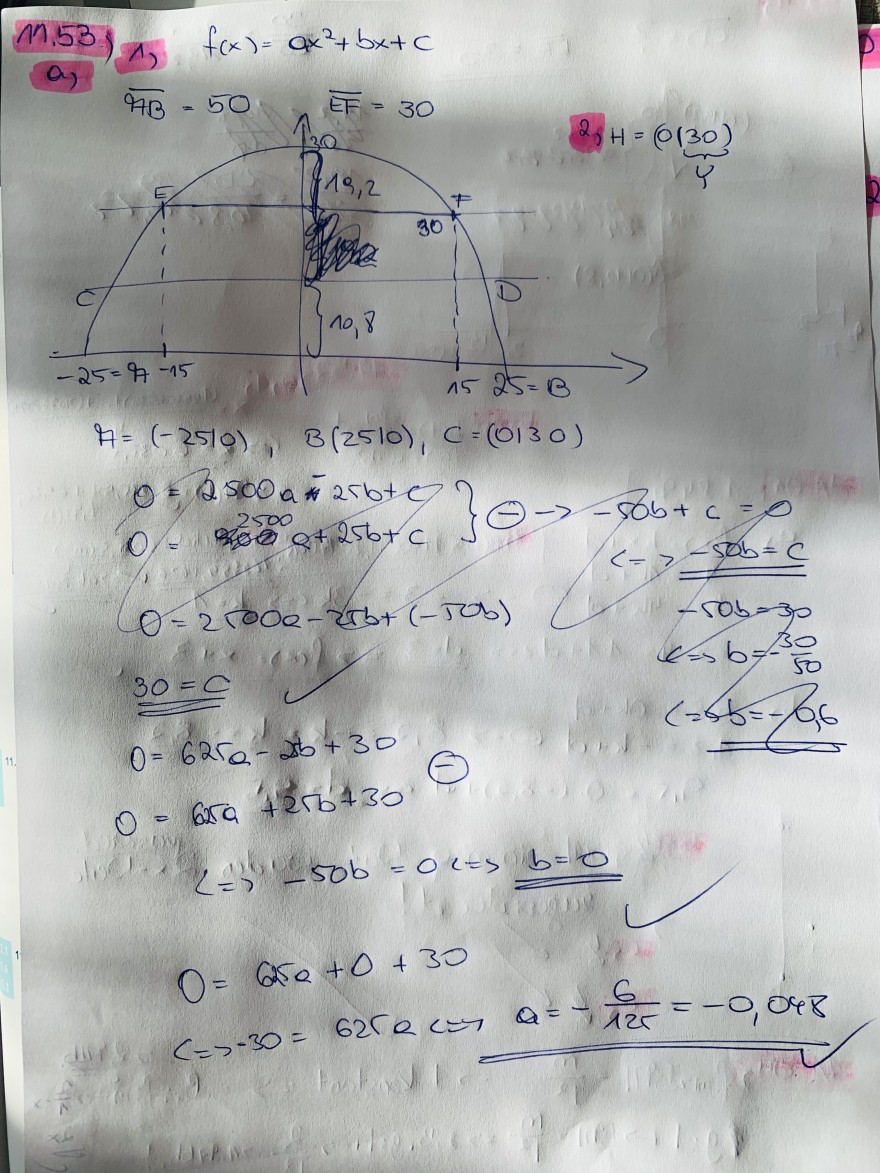 11.53) 1, f(x) = ax²+bx+c
a,
AB = 50 EF = 30
2, H = (0|30)
Y
30
E 19,2 F
30
C D
10,8
-25 = A -15 15 25 = B
A = (-25|0), B(25|0), C = (0|30)
0 = 2500a - 25b+c
2500
0 = a + 25b + c
⊖ -> -50b + c = 0
<=> -50b = c
0 = 2500a - 25b + (-50b)
-50b = 30
<=> b = -30/50
30 = c
<=> b = -0,6
0 = 625a - 25b + 30
⊖
0 = 625a + 25b + 30
<=> -50b = 0 <=> b = 0
0 = 625a + 0 + 30
<=> -30 = 625a <=> a = - 6/125 = -0,048